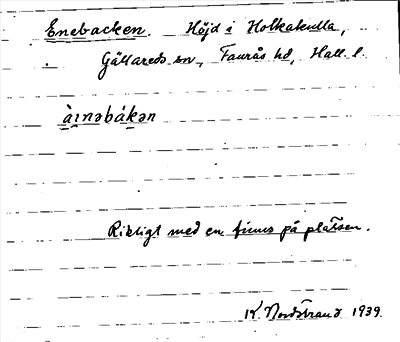 Enebacken. Höjd i Holkakulla,
Gällareds sn, Faurås hd, Hall. l.
àɪnəbákən
Rikligt med en finns på platsen.
K. Nordstrand 1939.